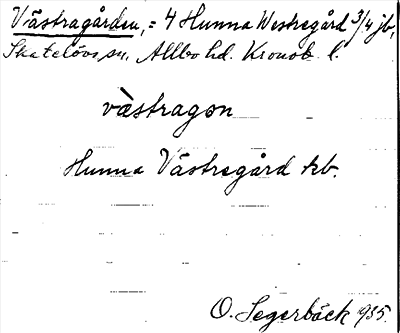 Västragården, = 4 Hunna Westregård 3/4 jb,
Skatelövs sn. Allbo hd. Kronob. l.
vȧstragon
Hunna Västregård kb.
O. Segerbäck 1935.